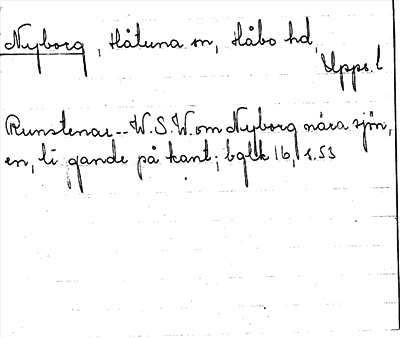 Nyborg, Håtuna sn, Håbo hd,
Upps. l
Runstenar -- W.S.W. om Nyborg nära sjön,
en, li gande på kant; bglk 16, s.53